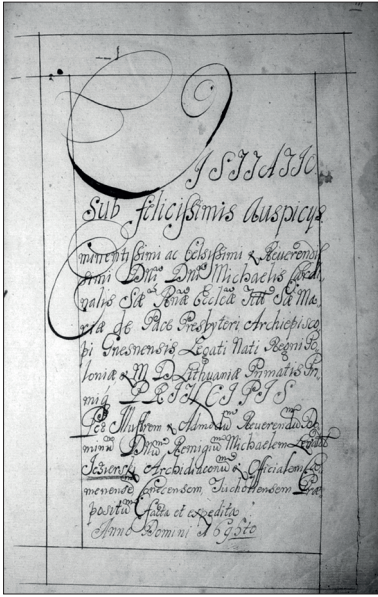 VISITATIO
Sub felicissimis Auspicys
Eminentissimi ac Celsissimi & Reverendis
simi Dnĩ Dnĩ Michaelis Cardi
nalis Sæ Rnæ Ecclæ Titt Sæ Ma
riæ de Pace Presbyteri Archiepisco
pi Gnesnensis, Legati Nati Regni Po
loniæ & M D Lithuaniæ Primatis Pri
mi₍q₎ PRINCIPIS
Per Illustrem & Admodũ Reverendũ Do
minũ Dnũ Remigiũ Michaelem
Jesiersk Archidiaconũ & Officialem Ca
menensẽ, Tucholiensem Præ
positũ facta et expedita
Anno Domini